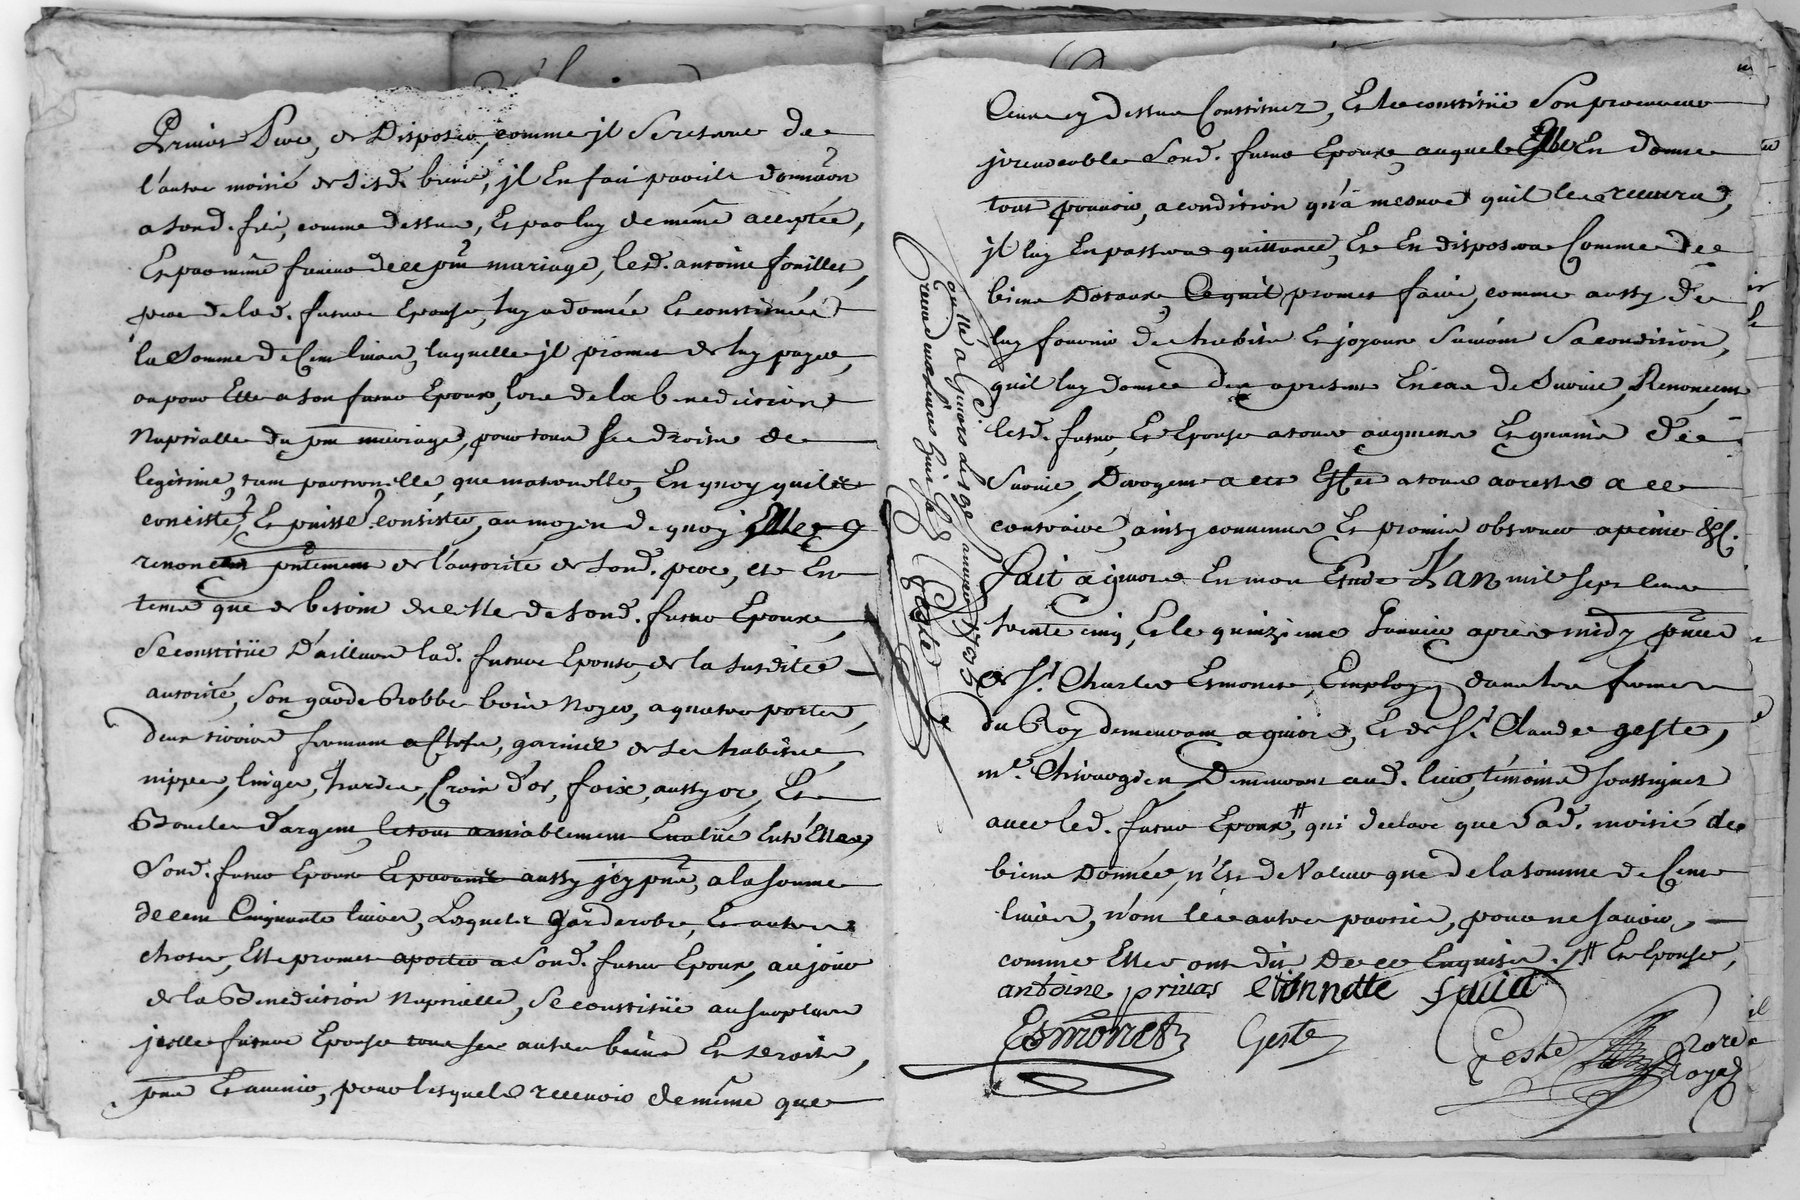 Privas Pere, et Disposer, comme jl se reserve de
l'autre moitié de sesd. biens, jl En fait pareille donnaõn
a sond. fils, comme dessus, Et par luy de même acceptée,
Et par même faveur de ce pñt mariage, led. antoine
pere de lad. future Epouse, luy a donnée Et constituée
la somme de Cent livres, laquelle jl promet de luy payer,
ou pour Elle a son futur Epoux, lors de la benediction
Nuptialle du pñt mariage, pour tous ses droits de
legitime, tant paternelle, que maternelle, En quoy quils
consiste, Et puisse consister, au moyen de quoy Elle
renonce pñtement de l'autorité de sond. pere, et En
tems que de besoin de celle de sond. futur Epoux,
Se constitüe D'ailleurs lad. future Epouse, de la susdite
autorité, son garde Robbe bois Noyer, a quatre portes,
deux tiroirs fermant a Clefs, garnie de ses habits,
nippes, linges, hardes, Croix d'or, foix, aussy or, Et
Boucles d'argent, le tout amiablement Evalüé Entr'Elle,
Sond. futur Epoux Et aussy jcy pñt, a la somme
de cent Cinquante livres, Lesquels garderobe, Et autres
choses, Elle promet aporter a Sond. futur Epoux, au jour
de la Benediction Nuptialle, Se constitüe au surplus
jcelle future Epouse tous ses autres biens Et droits,
pñts Et avenir, pour lesquels recevoir de même que
Ceux cy dessus Constituez, Elle constitüe Son procureur
jrrevocable Sond. futur Epoux, auquel Elle En donne
tout pouvoir, a condition qu'à mesure quil les recevra,
jl luy En passera quittance, Et En disposera Comme de
biens Dotaux, Ce quil promet faire, comme aussy de
luy fournir d'habits Et joyaux suivant Sa condition,
quil luy donne des apresent En cas de Survie, Renonceant
lesd. futurs Et Epouse a tous augment Et gains de
Survie, Derogeant a cet Effet a tous a ce
contraire, ainsy convenu Et promis observer a peine &c.
fait a givors En mon Etude L'an mil sept cent
trente cinq, Et le quinzieme Janvier après midy pñts
de sr. Charles Esmonet, Employé dans les fermes
du Roy demeurant a givors, Et de sr. Claude geste,
me. Chirurgien Demeurant aud. lieu, témoins soussignez
avec led. futur Epoux,# qui declare que lad. moitié de
biens Donnée, n'Est de Valeur que de la somme de Cent
livres, n'ont les autres parties, pour ne savoir,
comme Elles ont dit De ce Enquises. # Et Epouse,
antoine privas etiennette
Esmonet Geste Geste Nore Royal
a Givors le janvier 1735
Geste